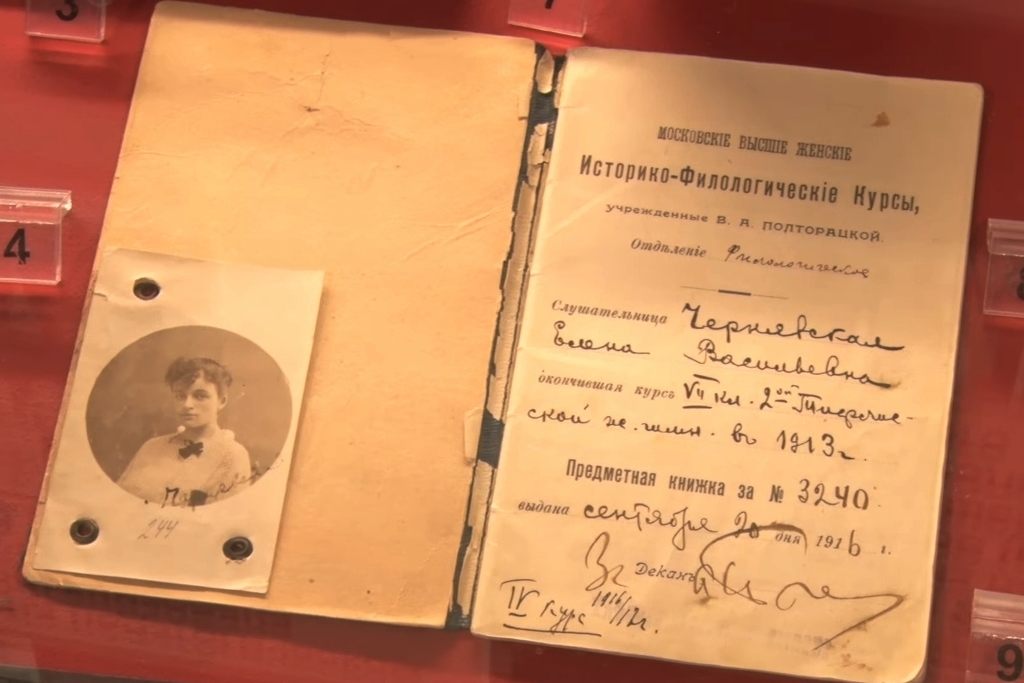 3
7
4
МОСКОВСКІЕ ВЫСШІЕ ЖЕНСКІЕ
Историко-Филологическіе Курсы,
учрежденные В. А. ПОЛТОРАЦКОЙ.
Отдѣленіе Филологическое
Слушательница Чернявская
Елена Васильевна
окончившая курсъ VII кл. 2ой Тифлис-
ской ж. гимн. въ 1913 г.
Предметная книжка за № 3240
выдана сентября 20 дня 1916 г.
Деканъ
IV курс 1916/17 г.
244
9